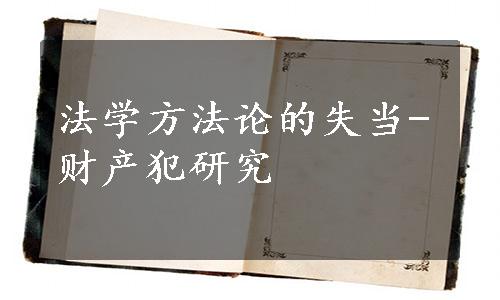 法学方法论的失当-
财产犯研究